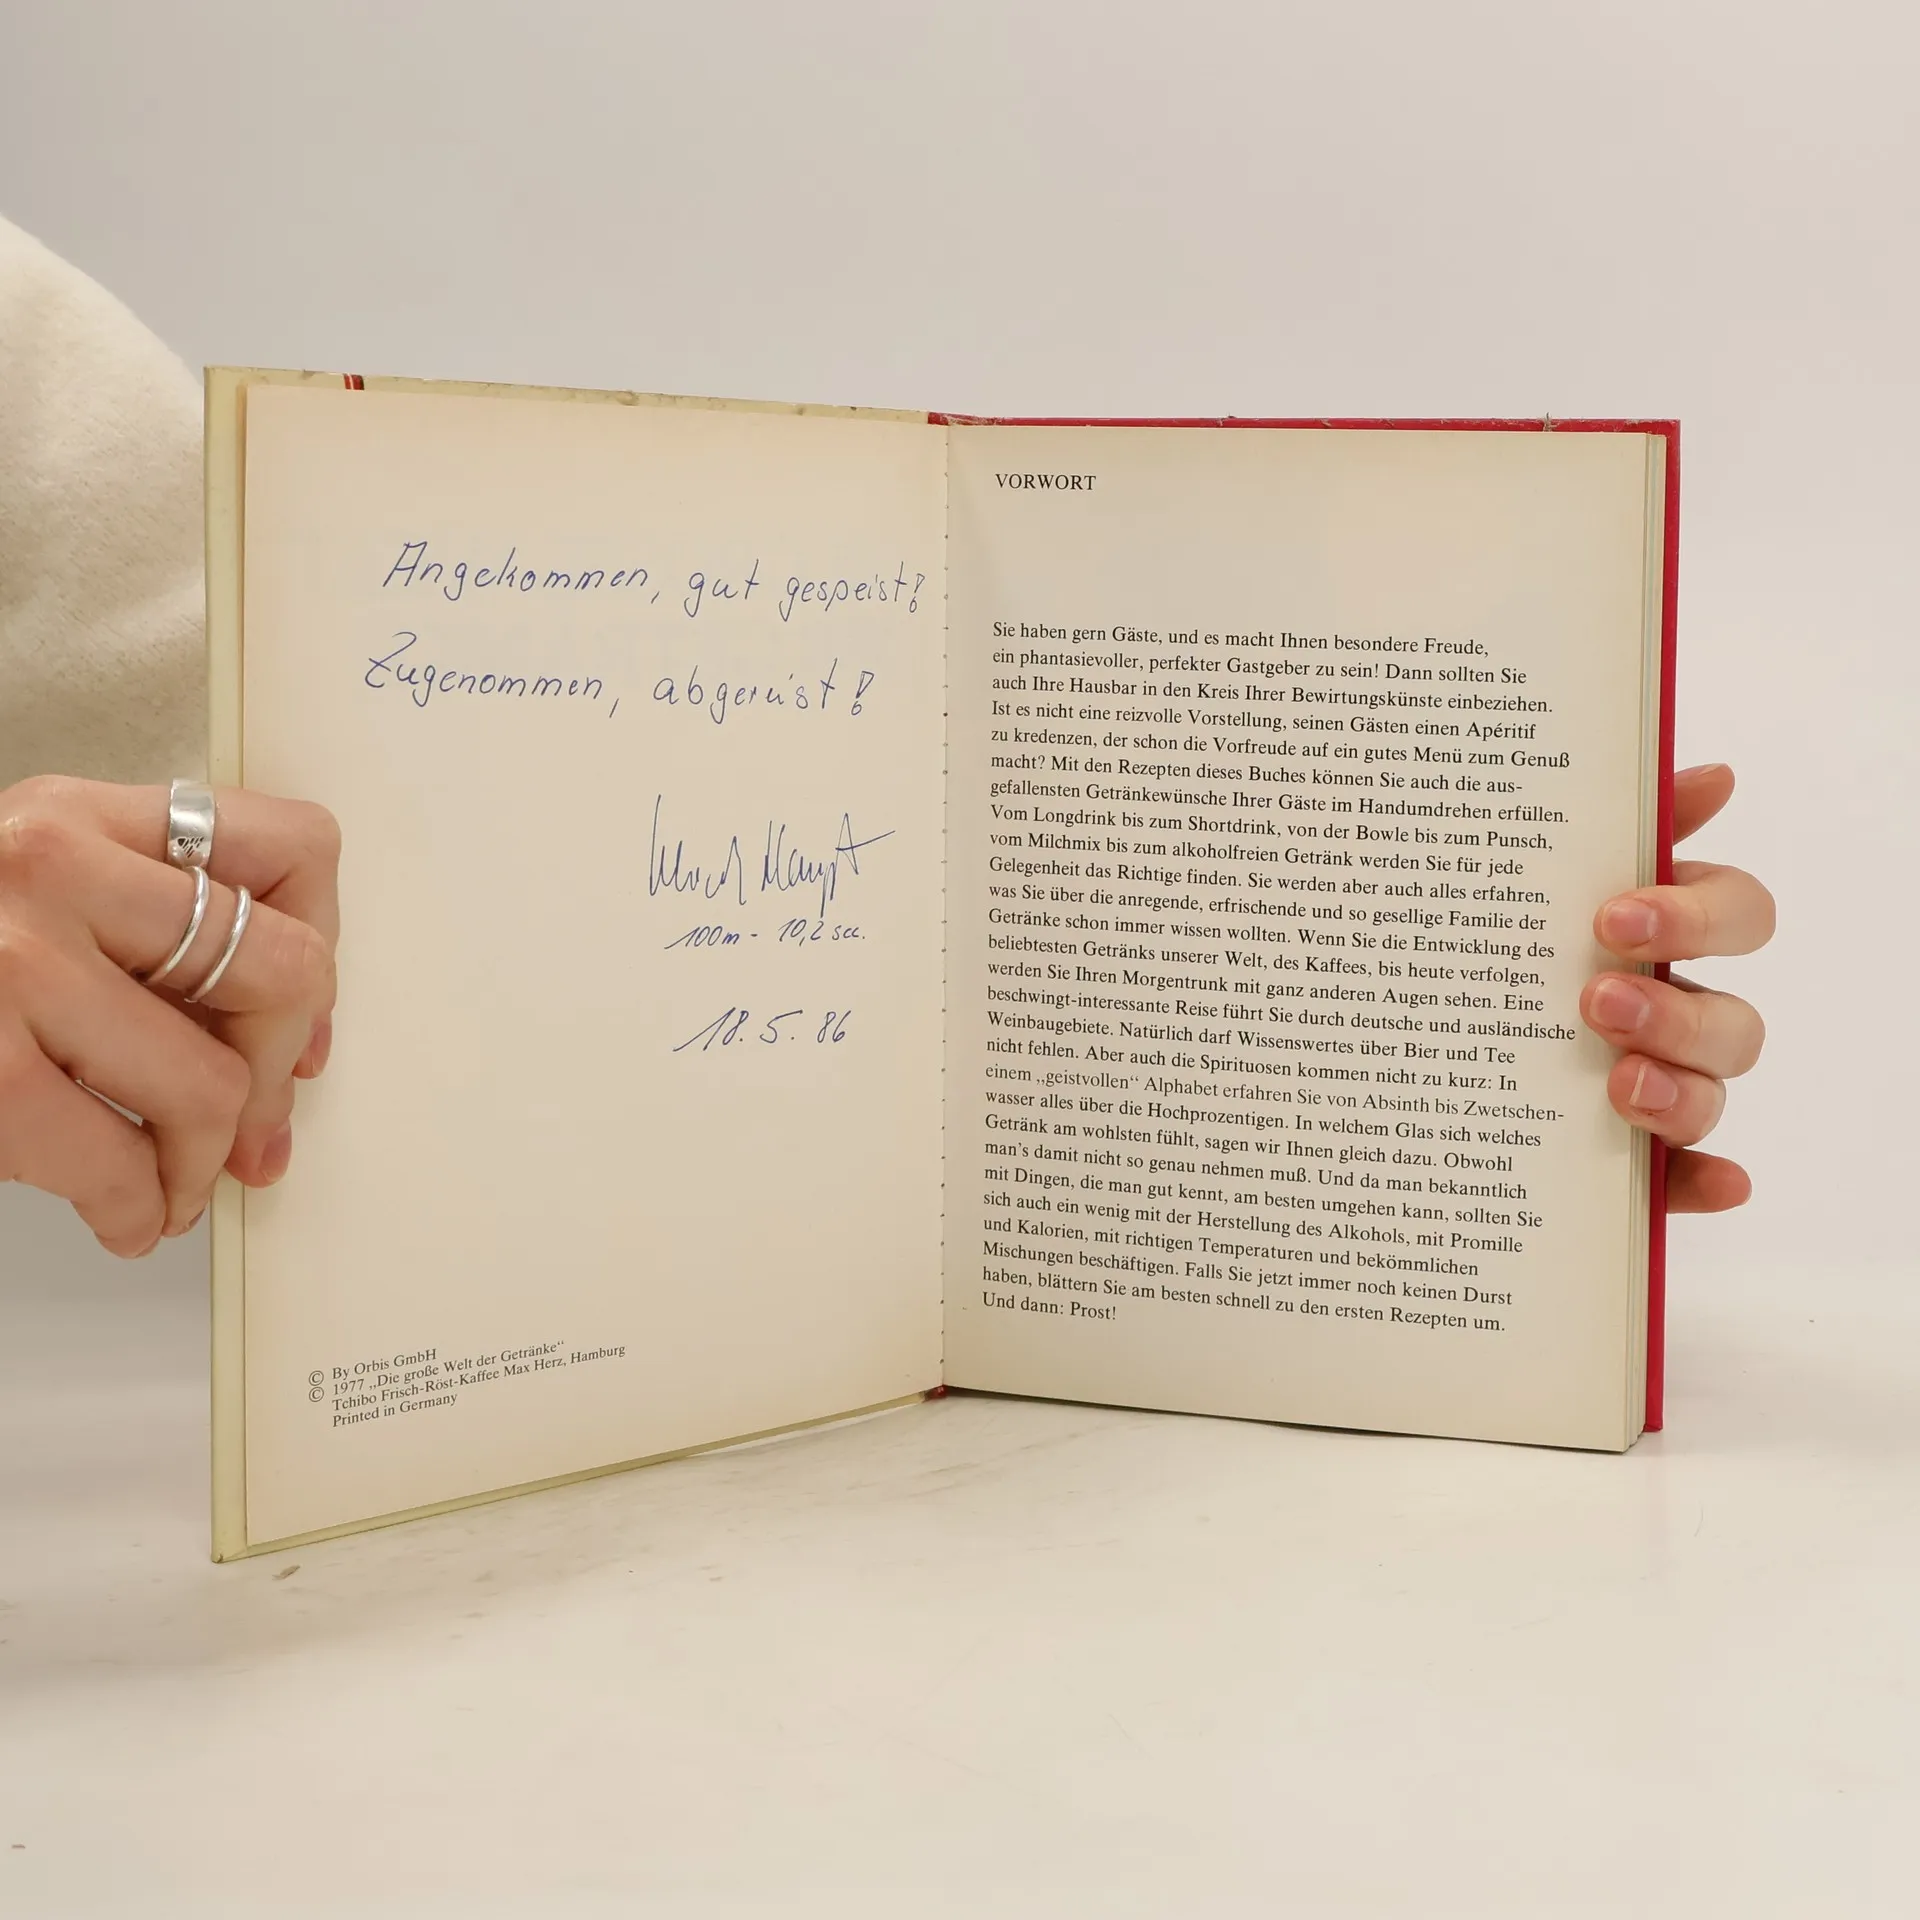 Angekommen, gut gespeist!
Zugenommen, abgereist!
100m - 10,2 sec.
18.5.86
© By Orbis GmbH
© 1977 „Die große Welt der Getränke“
Tchibo Frisch-Röst-Kaffee Max Herz, Hamburg
Printed in Germany
VORWORT
Sie haben gern Gäste, und es macht Ihnen besondere Freude,
ein phantasievoller, perfekter Gastgeber zu sein! Dann sollten Sie
auch Ihre Hausbar in den Kreis Ihrer Bewirtungskünste einbeziehen.
Ist es nicht eine reizvolle Vorstellung, seinen Gästen einen Apéritif
zu kredenzen, der schon die Vorfreude auf ein gutes Menü zum Genuß
macht? Mit den Rezepten dieses Buches können Sie auch die aus-
gefallensten Getränkewünsche Ihrer Gäste im Handumdrehen erfüllen.
Vom Longdrink bis zum Shortdrink, von der Bowle bis zum Punsch,
vom Milchmix bis zum alkoholfreien Getränk werden Sie für jede
Gelegenheit das Richtige finden. Sie werden aber auch alles erfahren,
was Sie über die anregende, erfrischende und so gesellige Familie der
Getränke schon immer wissen wollten. Wenn Sie die Entwicklung des
beliebtesten Getränks unserer Welt, des Kaffees, bis heute verfolgen,
werden Sie Ihren Morgentrunk mit ganz anderen Augen sehen. Eine
beschwingt-interessante Reise führt Sie durch deutsche und ausländische
Weinbaugebiete. Natürlich darf Wissenswertes über Bier und Tee
nicht fehlen. Aber auch die Spirituosen kommen nicht zu kurz: In
einem „geistvollen“ Alphabet erfahren Sie von Absinth bis Zwetschen-
wasser alles über die Hochprozentigen. In welchem Glas sich welches
Getränk am wohlsten fühlt, sagen wir Ihnen gleich dazu. Obwohl
man's damit nicht so genau nehmen muß. Und da man bekanntlich
mit Dingen, die man gut kennt, am besten umgehen kann, sollten Sie
sich auch ein wenig mit der Herstellung des Alkohols, mit Promille
und Kalorien, mit richtigen Temperaturen und bekömmlichen
Mischungen beschäftigen. Falls Sie jetzt immer noch keinen Durst
haben, blättern Sie am besten schnell zu den ersten Rezepten um.
Und dann: Prost!